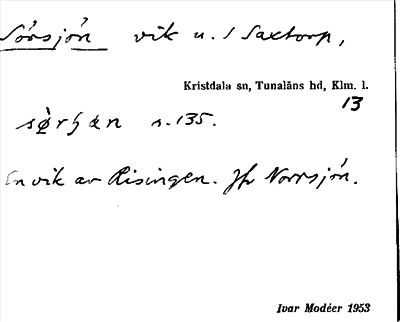 Sörsjön vik u. / Saxtorp,
Kristdala sn, Tunaläns hd, Klm. l.
13
s. 135.
En vik av Risingen. Jfr Norrsjön.
Ivar Modéer 1953